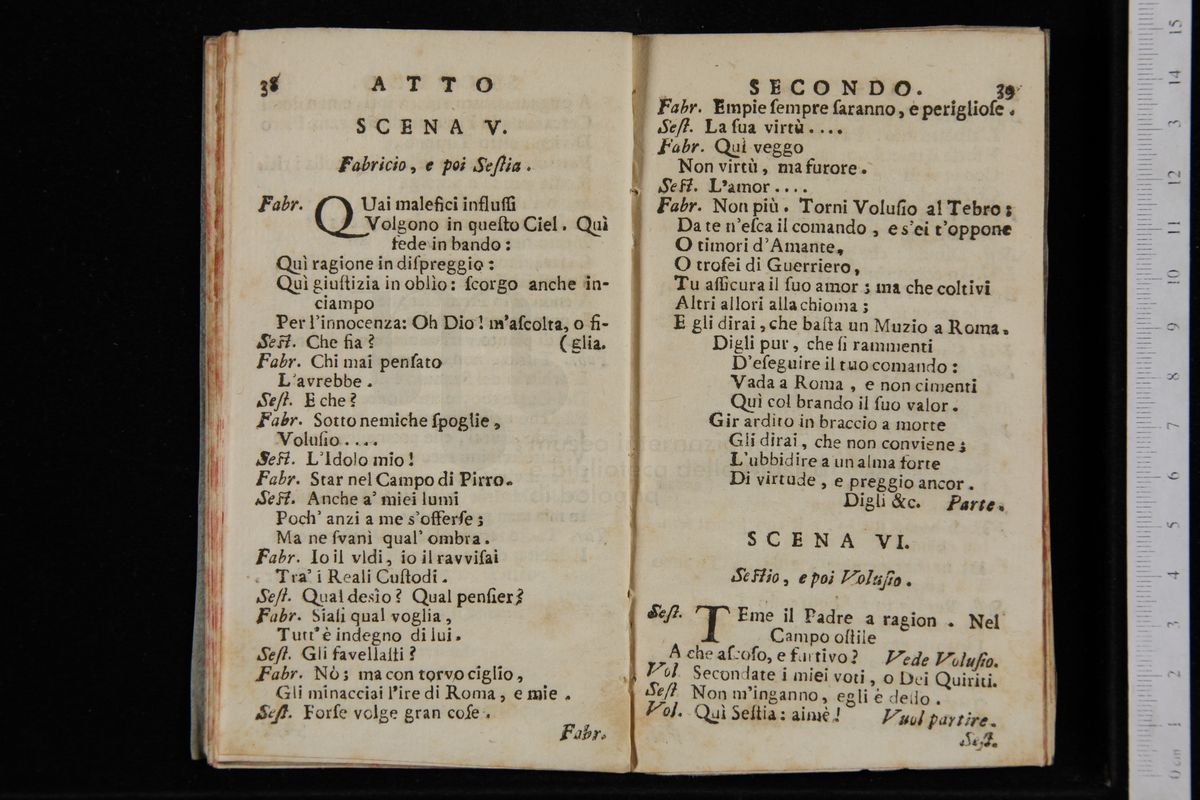 38 ATTO
SCENA V.
Fabricio, e poi Seſtia.
Fabr. QUai malefici influſſi
Volgono in queſto Ciel. Quì
fede in bando:
Quì ragione in diſpreggio:
Quì giuſtizia in oblìo: ſcorgo anche in-
ciampo
Per l'innocenza: Oh Dio! m'aſcolta, o fi-
Seſt. Che ſia? (glia.
Fabr. Chi mai penſato
L'avrebbe.
Seſt. E che?
Fabr. Sotto nemiche ſpoglie,
Voluſio....
Seſt. L'Idolo mio!
Fabr. Star nel Campo di Pirro.
Seſt. Anche a' miei lumi
Poch' anzi a me s'offerſe;
Ma ne ſvanì qual' ombra.
Fabr. Io il vidi, io il ravviſai
Tra' i Reali Cuſtodi.
Seſt. Qual desìo? Qual penſier?
Fabr. Siaſi qual voglia,
Tutt' è indegno di lui.
Seſt. Gli favellaſti?
Fabr. Nò; ma con torvo ciglio,
Gli minacciai l'ire di Roma, e mie.
Seſt. Forſe volge gran coſe.
Fabr.
SECONDO. 39
Fabr. Empie ſempre ſaranno, e periglioſe.
Seſt. La ſua virtù....
Fabr. Quì veggo
Non virtù, ma furore.
Seſt. L'amor....
Fabr. Non più. Torni Voluſio al Tebro;
Da te n'eſca il comando, e s'ei t'oppone
O timori d'Amante,
O trofei di Guerriero,
Tu aſſicura il ſuo amor; ma che coltivi
Altri allori alla chioma;
E gli dirai, che baſta un Muzio a Roma.
Digli pur, che ſi rammenti
D'eſeguire il tuo comando:
Vada a Roma, e non cimenti
Quì col brando il ſuo valor.
Gir ardito in braccio a morte
Gli dirai, che non conviene;
L'ubbidire a un alma forte
Di virtude, e preggio ancor.
Digli &c. Parte.
SCENA VI.
Seſtio, e poi Voluſio.
Seſt. TEme il Padre a ragion. Nel
Campo oſtile
A che aſcoſo, e furtivo? Vede Voluſio.
Vol. Secondate i miei voti, o Dei Quiriti.
Seſt. Non m'inganno, egli è deſſo.
Vol. Quì Seſtia: aimè! Vuol partire.
Seſt.
museo internazi
e biblioteca della
di bologna
0 cm 1 2 3 4 5 6 7 8 9 10 11 12 3 14 15